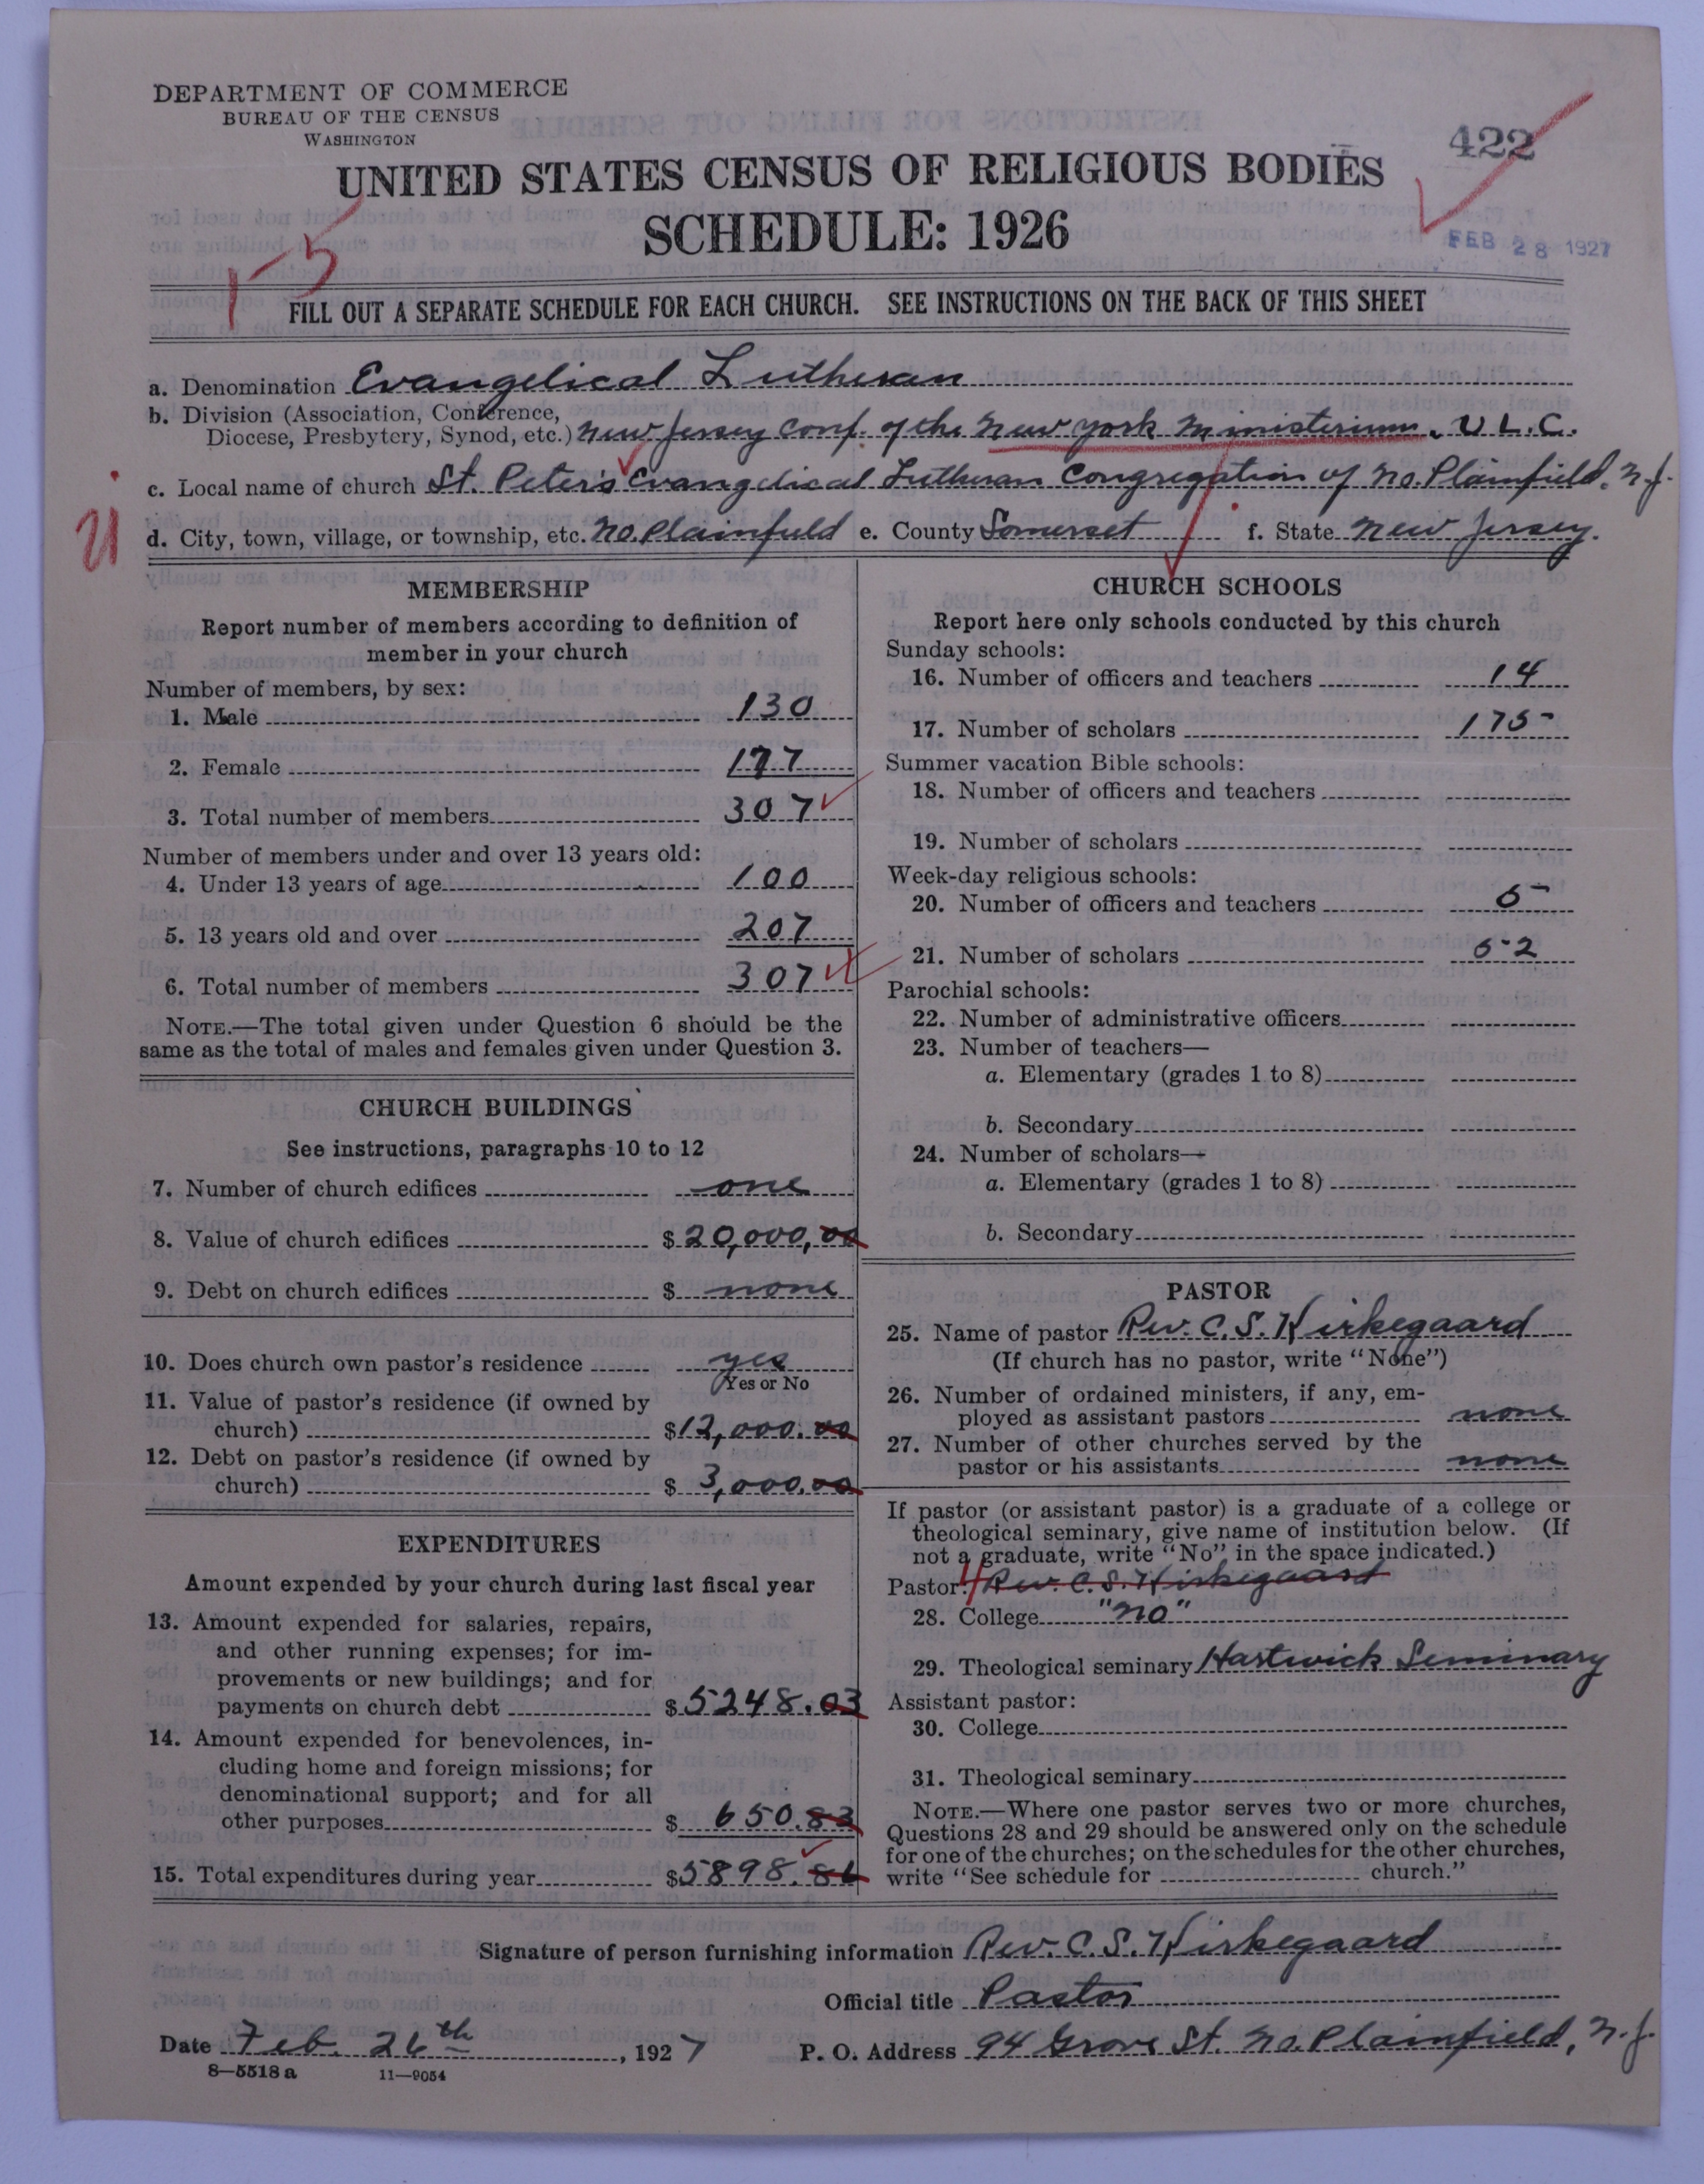 DEPARTMENT OF COMMERCE
BUREAU OF THE CENSUS
WASHINGTON
422
UNITED STATES CENSUS OF RELIGIOUS BODIES
SCHEDULE: 1926
FEB 28 1927
1-5
FILL OUT A SEPARATE SCHEDULE FOR EACH CHURCH. SEE INSTRUCTIONS ON THE BACK OF THIS SHEET
a. Denomination Evangelical Lutheran
b. Division (Association, Conference,
Diocese, Presbytery, Synod, etc.) New Jersey Conf. of the New York Ministerium. U.L.C.
c. Local name of church St. Peter's Evangelical Lutheran Congregation of No. Plainfield. N.J.
d. City, town, village, or township, etc. No. Plainfield e. County Somerset f. State New Jersey.
MEMBERSHIP
Report number of members according to definition of
member in your church
Number of members, by sex:
1. Male 130
2. Female 177
3. Total number of members 307
Number of members under and over 13 years old:
4. Under 13 years of age 100
5. 13 years old and over 207
6. Total number of members 307
NOTE.—The total given under Question 6 should be the
same as the total of males and females given under Question 3.
CHURCH BUILDINGS
See instructions, paragraphs 10 to 12
7. Number of church edifices one
8. Value of church edifices $ 20,000,00
9. Debt on church edifices $ none
10. Does church own pastor's residence yes
Yes or No
11. Value of pastor's residence (if owned by
church) $ 12,000.00
12. Debt on pastor's residence (if owned by
church) $ 3,000.00
EXPENDITURES
Amount expended by your church during last fiscal year
13. Amount expended for salaries, repairs,
and other running expenses; for im-
provements or new buildings; and for
payments on church debt $ 5248.03
14. Amount expended for benevolences, in-
cluding home and foreign missions; for
denominational support; and for all
other purposes $ 650.83
15. Total expenditures during year $ 5898.86
CHURCH SCHOOLS
Report here only schools conducted by this church
Sunday schools:
16. Number of officers and teachers 14
17. Number of scholars 175
Summer vacation Bible schools:
18. Number of officers and teachers
19. Number of scholars
Week-day religious schools:
20. Number of officers and teachers 5
21. Number of scholars 52
Parochial schools:
22. Number of administrative officers
23. Number of teachers—
a. Elementary (grades 1 to 8)
b. Secondary
24. Number of scholars—
a. Elementary (grades 1 to 8)
b. Secondary
PASTOR
25. Name of pastor Rev. C. S. Kirkegaard
(If church has no pastor, write "None")
26. Number of ordained ministers, if any, em-
ployed as assistant pastors none
27. Number of other churches served by the
pastor or his assistants none
If pastor (or assistant pastor) is a graduate of a college or
theological seminary, give name of institution below. (If
not a graduate, write "No" in the space indicated.)
Pastor: Rev. C. S. Kirkegaard
28. College "No"
29. Theological seminary Hartwick Seminary
Assistant pastor:
30. College
31. Theological seminary
NOTE.—Where one pastor serves two or more churches,
Questions 28 and 29 should be answered only on the schedule
for one of the churches; on the schedules for the other churches,
write "See schedule for church."
Signature of person furnishing information Rev. C. S. Kirkegaard
Official title Pastor
Date Feb. 26th, 1927 P. O. Address 94 Grove St. No. Plainfield, N.J.
8—5518 a 11—9054